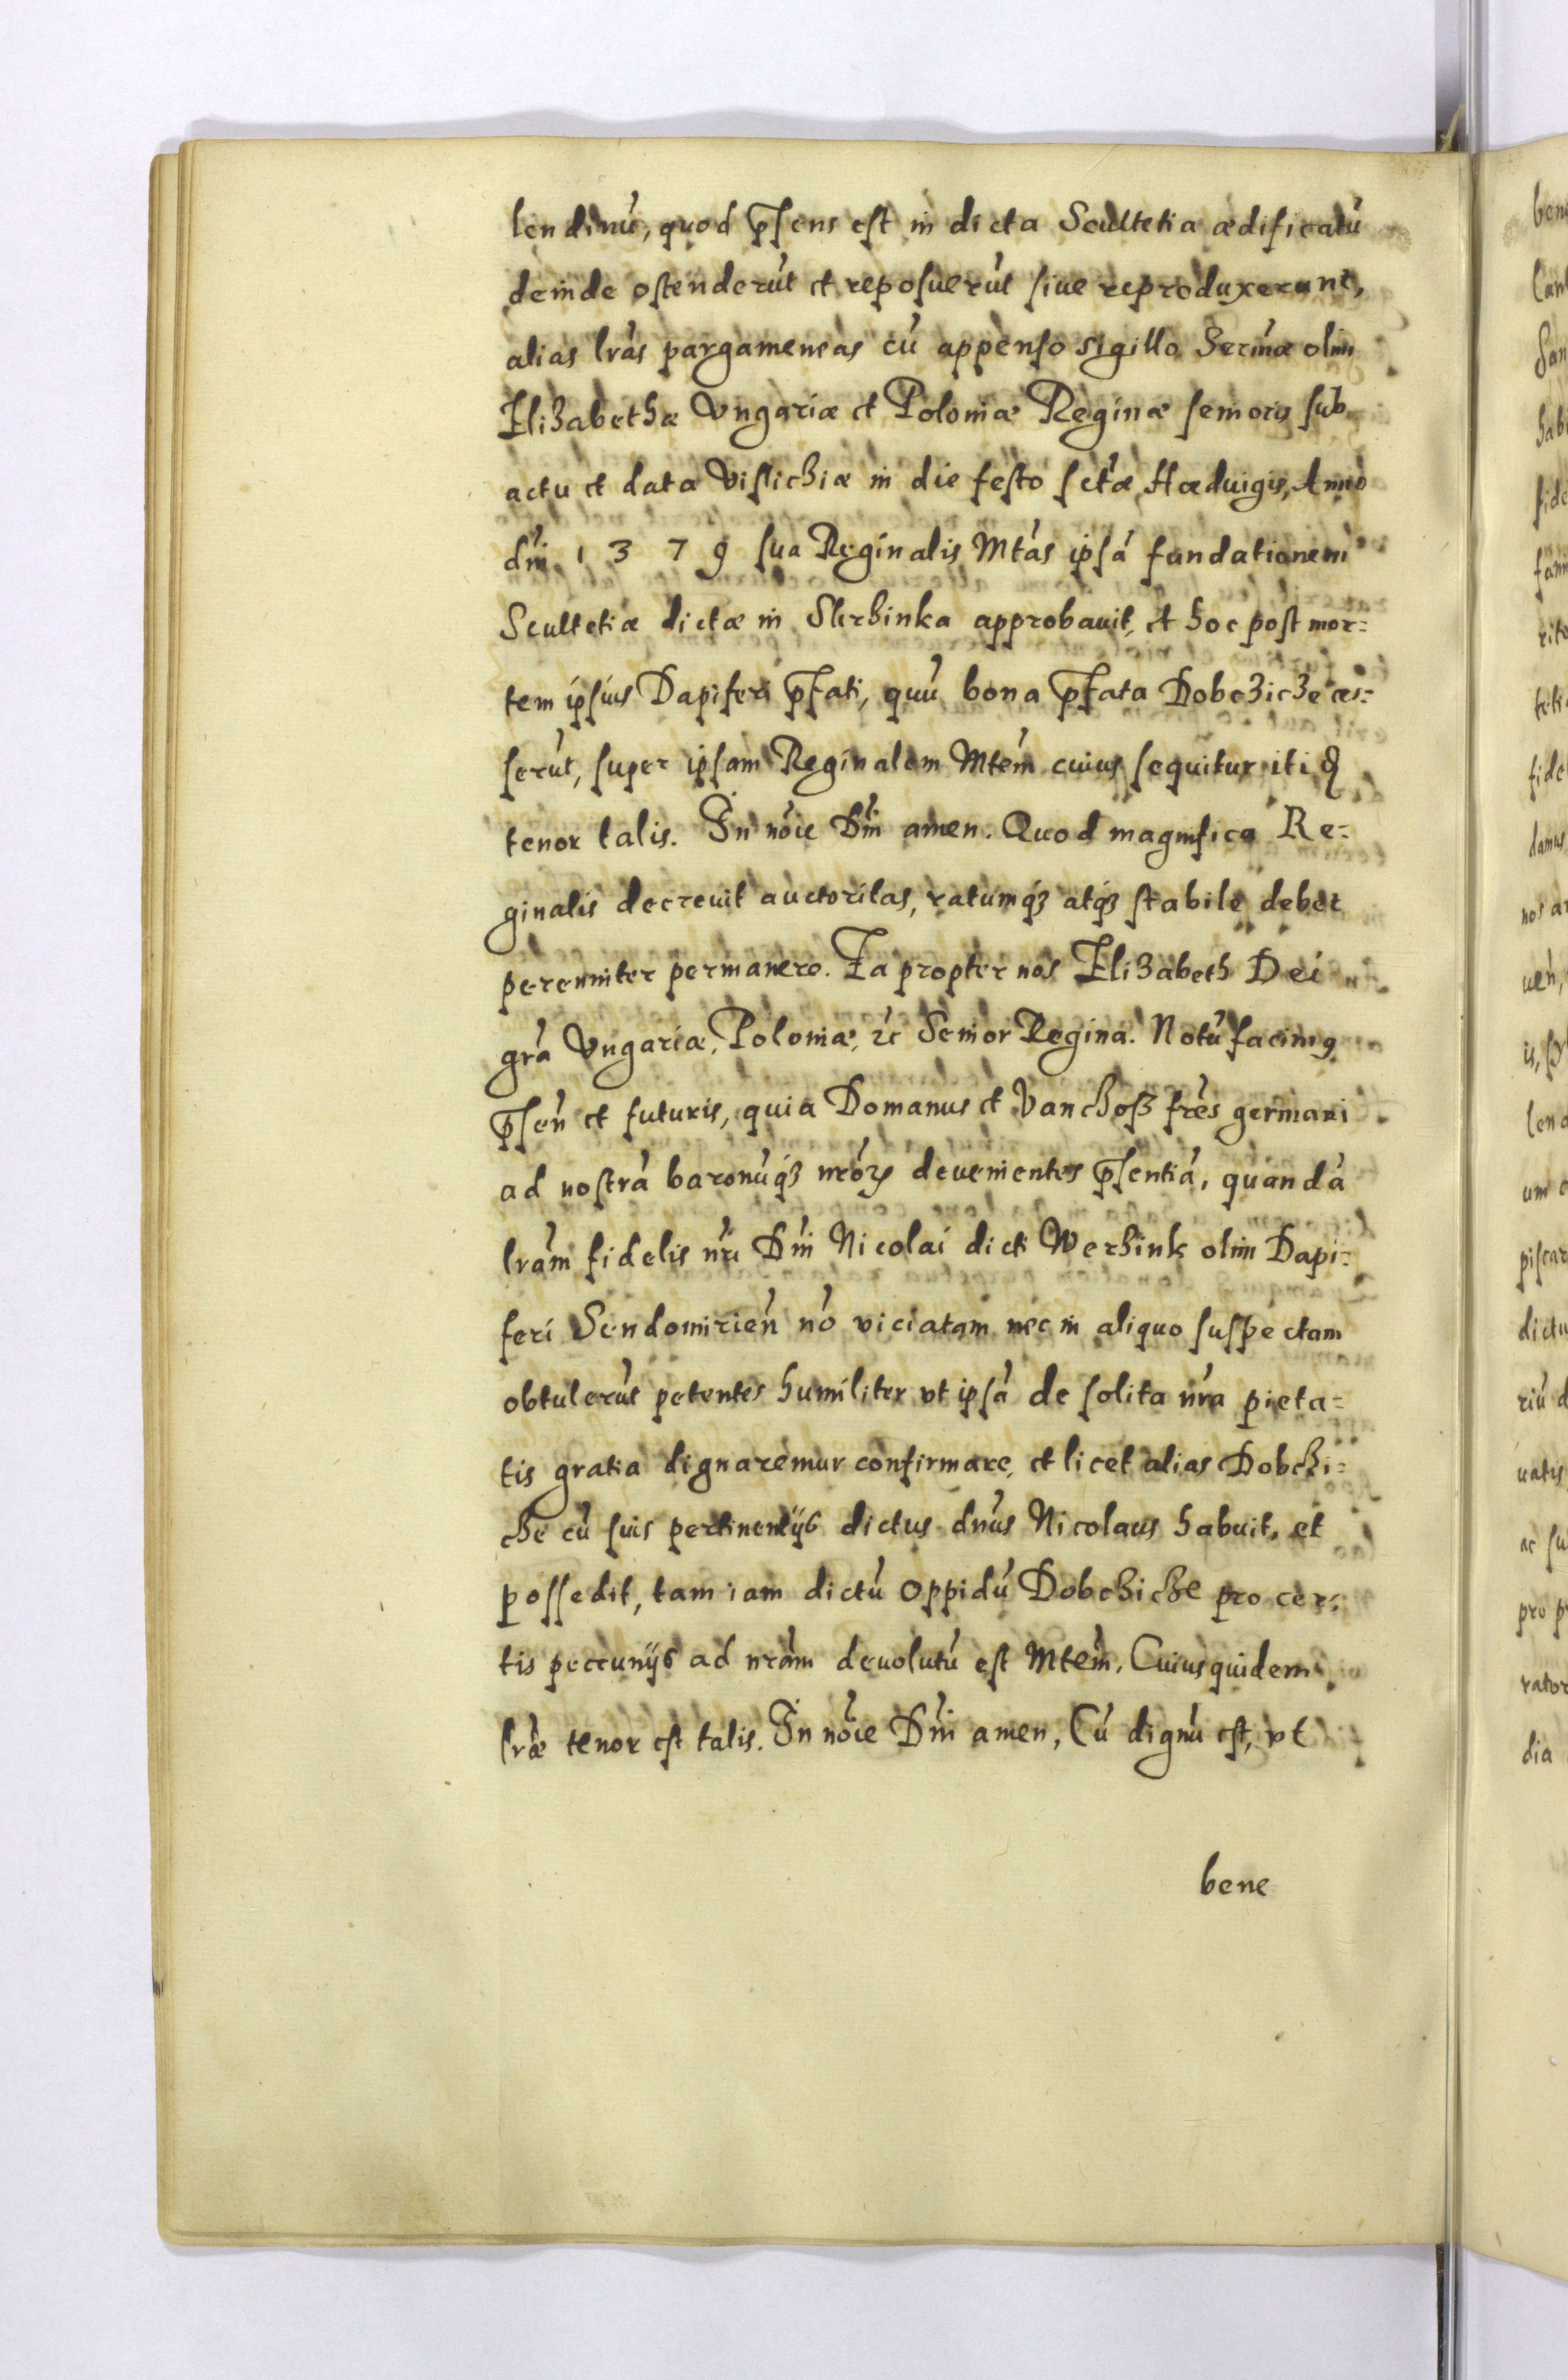 lendinū, quod p̄sens est in dicta Scultetia ædificatū
deinde ostenderūt et reposuerūt siue reproduxerunt,
alias lrās pargameneas cū appenso sigillo Serm̄æ olim
Elizabethæ Vngariæ et Poloniæ Reginæ senioris sub
actu et data Vislichiæ in die festo sctæ Hæduigis, Anno
dnī 1379 sua Reginalis Mtās ipsā fundationem
Scultetiæ dictæ in Skrzinka approbauit, et hoc post mor=
tem ipsius Dapiferi p̄fati, quū bona p̄fata Dobczicze ces=
serūt, super ipsam Reginalem Mtēm cuius sequitur
tenor talis. In nōīe Dnī amen. Quod magnifica Re=
ginalis decreuit auctoritas, ratumq3 atq3 stabile debet
perenniter permanere. Ea propter nos Elizabeth Dei
grā Vngariæ, Poloniæ, &c Senior Regina. Notū facimꝰ
p̄sen̄ et futuris, quia Domanus et Vanchoß frēs germani
ad nostrā baronūq3 nrōꝝ deuenientes p̄sentiā, quandā
lrām fidelis nrī Dnī Nicolai dicti Werzink olim Dapi=
feri Sendomirien̄ nō viciatam nec in aliquo suspectam
obtulerūt petentes humiliter vt ipsā de solita nrā pieta=
tis gratia dignaremur confirmare, et licet alias Dobchi=
che cū suis pertinentijs dictus dnūs Nicolaus habuit, et
possedit, tam iam dictū oppidū Dobchiche pro cer=
tis pecunijs ad nrām deuolutū est Mtēm, Cuiusquidem
lrǣ tenor est talis. In nōīe Dnī amen, Cū dignū est, vt
bene